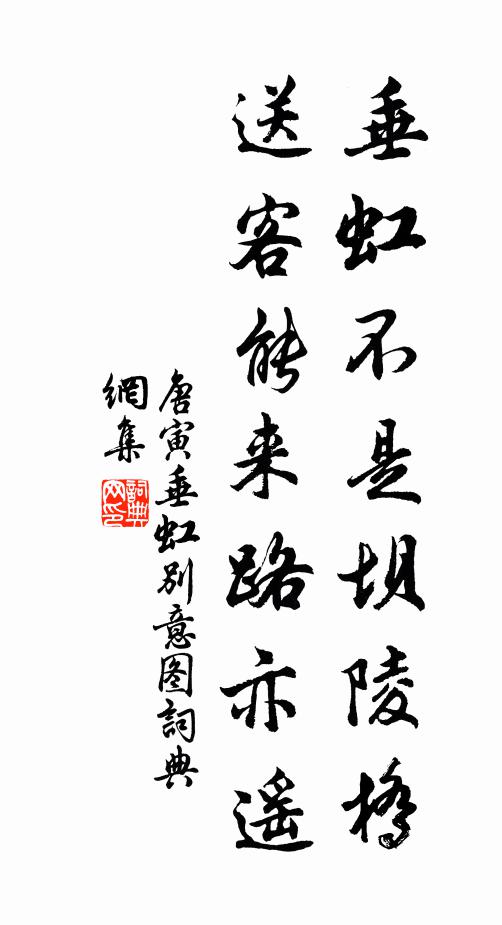 垂虹不是坝陵橋
送客能来路亦遥
唐寅垂虹别意图詞典
網集
詞典網印